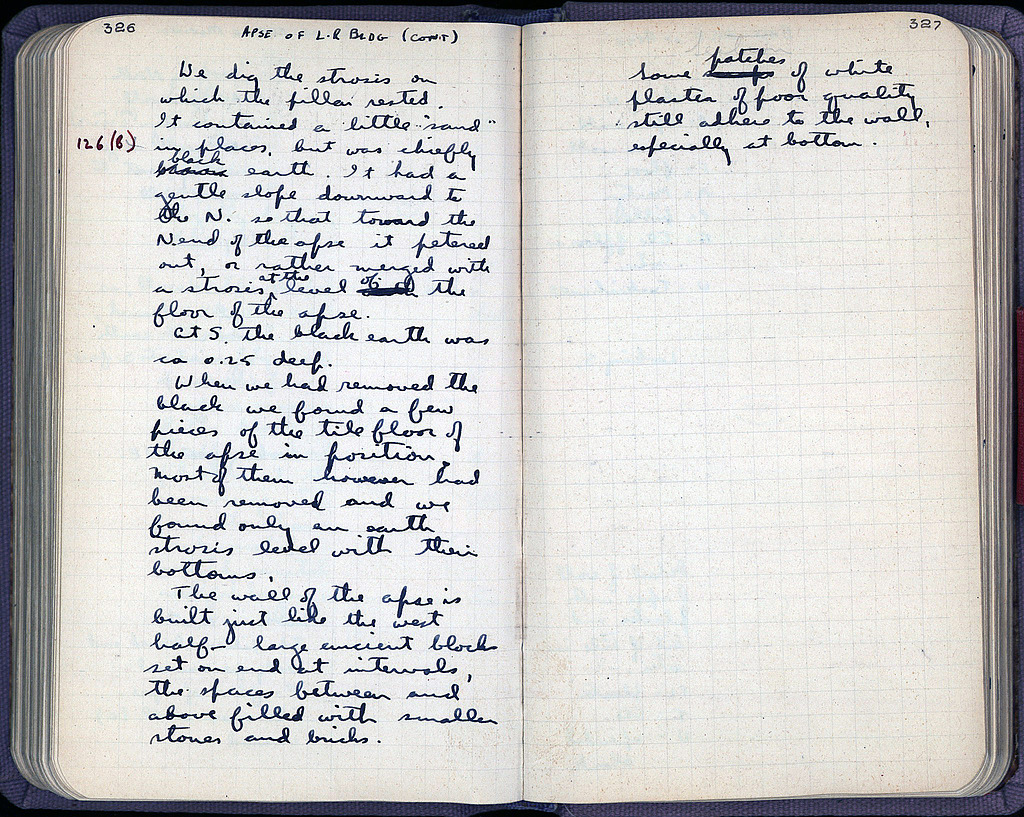 326
APSE OF L.R BLDG (CON'T)
We dig the strosis on
which the pillar rested.
It contained a little "sand"
126(B)
in places, but was chiefly
black
brown earth. It had a
gentle slope downward to
the N. so that toward the
N end of the apse it petered
out, or rather merged with
a strosis at the level of the
floor of the apse.
At S. the black earth was
ca 0.25 deep.
When we had removed the
black we found a few
pieces of the tile floor of
the apse in position.
Most of them however had
been removed and we
found only an earth
strosis level with their
bottoms.
The wall of the apse is
built just like the west
half – large ancient blocks
set on end at intervals,
the spaces between and
above filled with smaller
stones and bricks.
327
patches
Some of white
plaster of poor quality
still adhere to the wall,
especially at bottom.